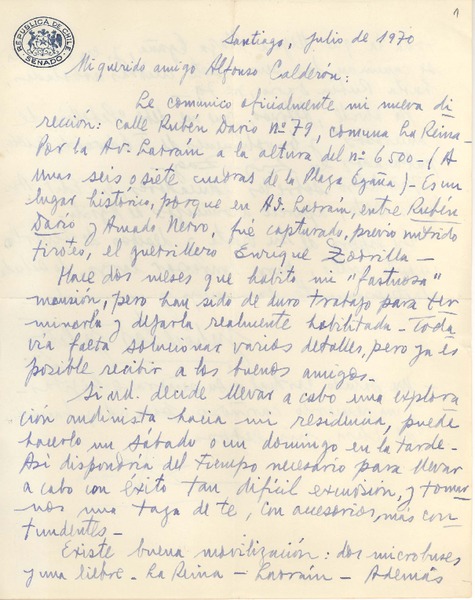 REPUBLICA DE CHILE
SENADO
1
Santiago, julio de 1970
Mi querido amigo Alfonso Calderón:
Le comunico oficialmente mi nueva di
rección: calle Rubén Darío Nº 79, comuna La Reina-
Por la Av. Larraín a la altura del nº 6500-(A
unas seis o siete cuadras de la Plaza Egaña)- Es un
lugar histórico, porque en Av. Larraín, entre Rubén
Darío y Amado Nervo, fué capturado, previo nutrido
tiroteo, el guerrillero Enrique Zorrilla-
Hace dos meses que habito mi "fastuosa"
mansión, pero han sido de duro trabajo para ter
minarla y dejarla realmente habilitada- Toda
vía falta solucionar varios detalles, pero ya es
posible recibir a los buenos amigos-
Si ud. decide llevar a cabo una explora
ción andinista hacia mi residencia, puede
hacerlo un sábado o un domingo en la tarde-
Así dispondría del tiempo necesario para llevar
a cabo con éxito tan difícil excursión, y tomar
nos una taza de te, con accesorios, más con
tundentes-
Existe buena movilización: dos microbuses
y una liebre- La Reina- Larraín- Además